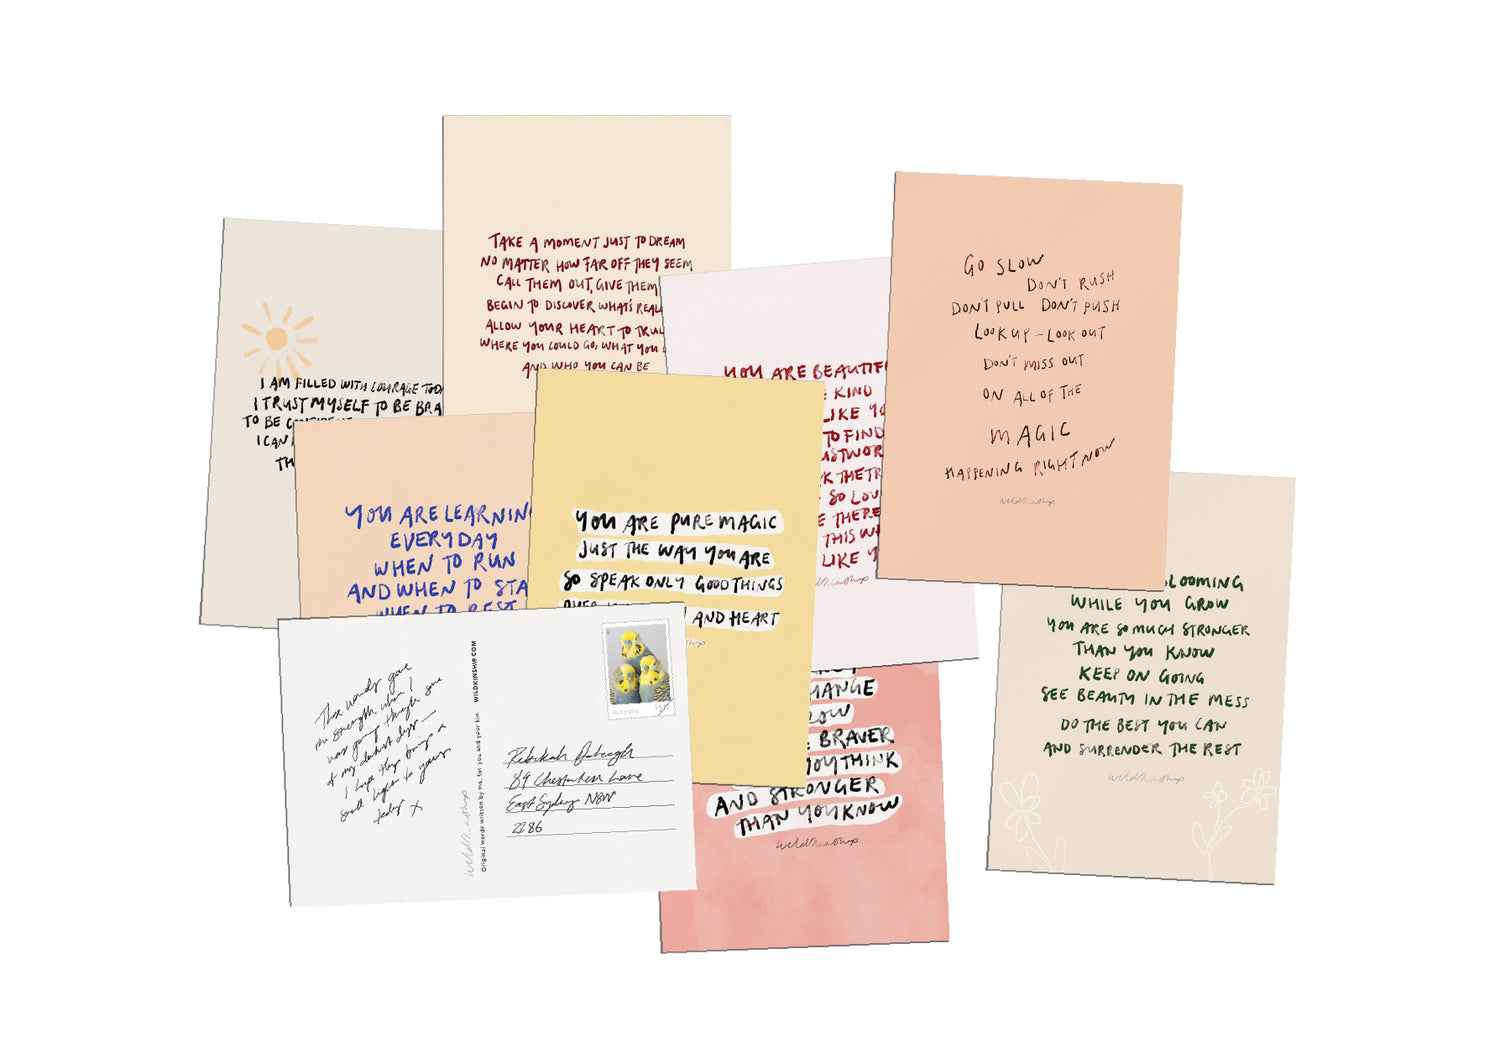 TAKE A MOMENT JUST TO DREAM
NO MATTER HOW FAR OFF THEY SEEM
CALL THEM OUT, GIVE THEM
BEGIN TO DISCOVER WHAT'S
ALLOW YOUR HEART TO
WHERE YOU COULD GO, WHAT YOU
AND WHO YOU CAN BE
I AM FILLED WITH COURAGE
I TRUST MYSELF TO BE
TO BE
I CAN
YOU ARE
KIND
LIKE
TO FIND
THERE
THIS
LIKE
wildkinship
GO SLOW
DON'T RUSH
DON'T PULL DON'T PUSH
LOOK UP - LOOK OUT
DON'T MISS OUT
ON ALL OF THE
MAGIC
HAPPENING RIGHT NOW
wildkinship
YOU ARE LEARNING
EVERYDAY
WHEN TO RUN
AND WHEN TO
WHEN TO REST
YOU ARE PURE MAGIC
JUST THE WAY YOU ARE
SO SPEAK ONLY GOOD THINGS
OVER
AND HEART
BLOOMING
WHILE YOU GROW
YOU ARE SO MUCH STRONGER
THAN YOU KNOW
KEEP ON GOING
SEE BEAUTY IN THE MESS
DO THE BEST YOU CAN
AND SURRENDER THE REST
wildkinship
These words gave
me strength when I
was going through some
of my darkest days —
I hope they bring a
small light to yours
today x
wildkinship
Original words written by me, for you and your kin. WILDKINSHIP.COM
Australia
Rebekah
89 Lane
East Sydney NSW
2286
CHANGE
BRAVER
YOU THINK
AND STRONGER
THAN YOU KNOW
wildkinship